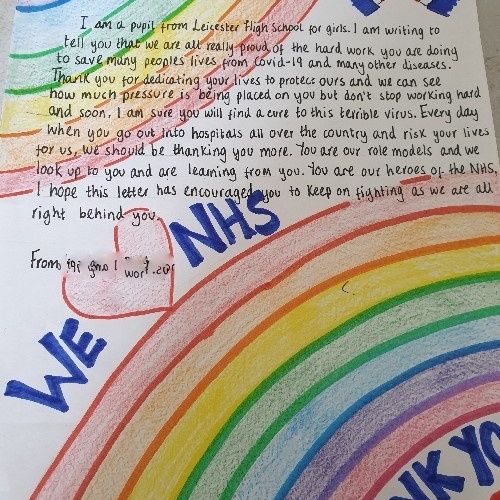 I am a pupil from Leicester High School for girls. I am writing to
tell you that we are all really proud of the hard work you are doing
to save many peoples lives from Covid-19 and many other diseases.
Thank you for dedicating your lives to protect ours and we can see
how much pressure is being placed on you but don't stop working hard
and soon, I am sure you will find a cure to this terrible virus. Every day
when you go out into hospitals all over the country and risk your lives
for us, we should be thanking you more. You are our role models and we
look up to you and are learning from you. You are our heroes of the NHS,
I hope this letter has encouraged you to keep on fighting as we are all
right behind you.
From
WE NHS
NK YO